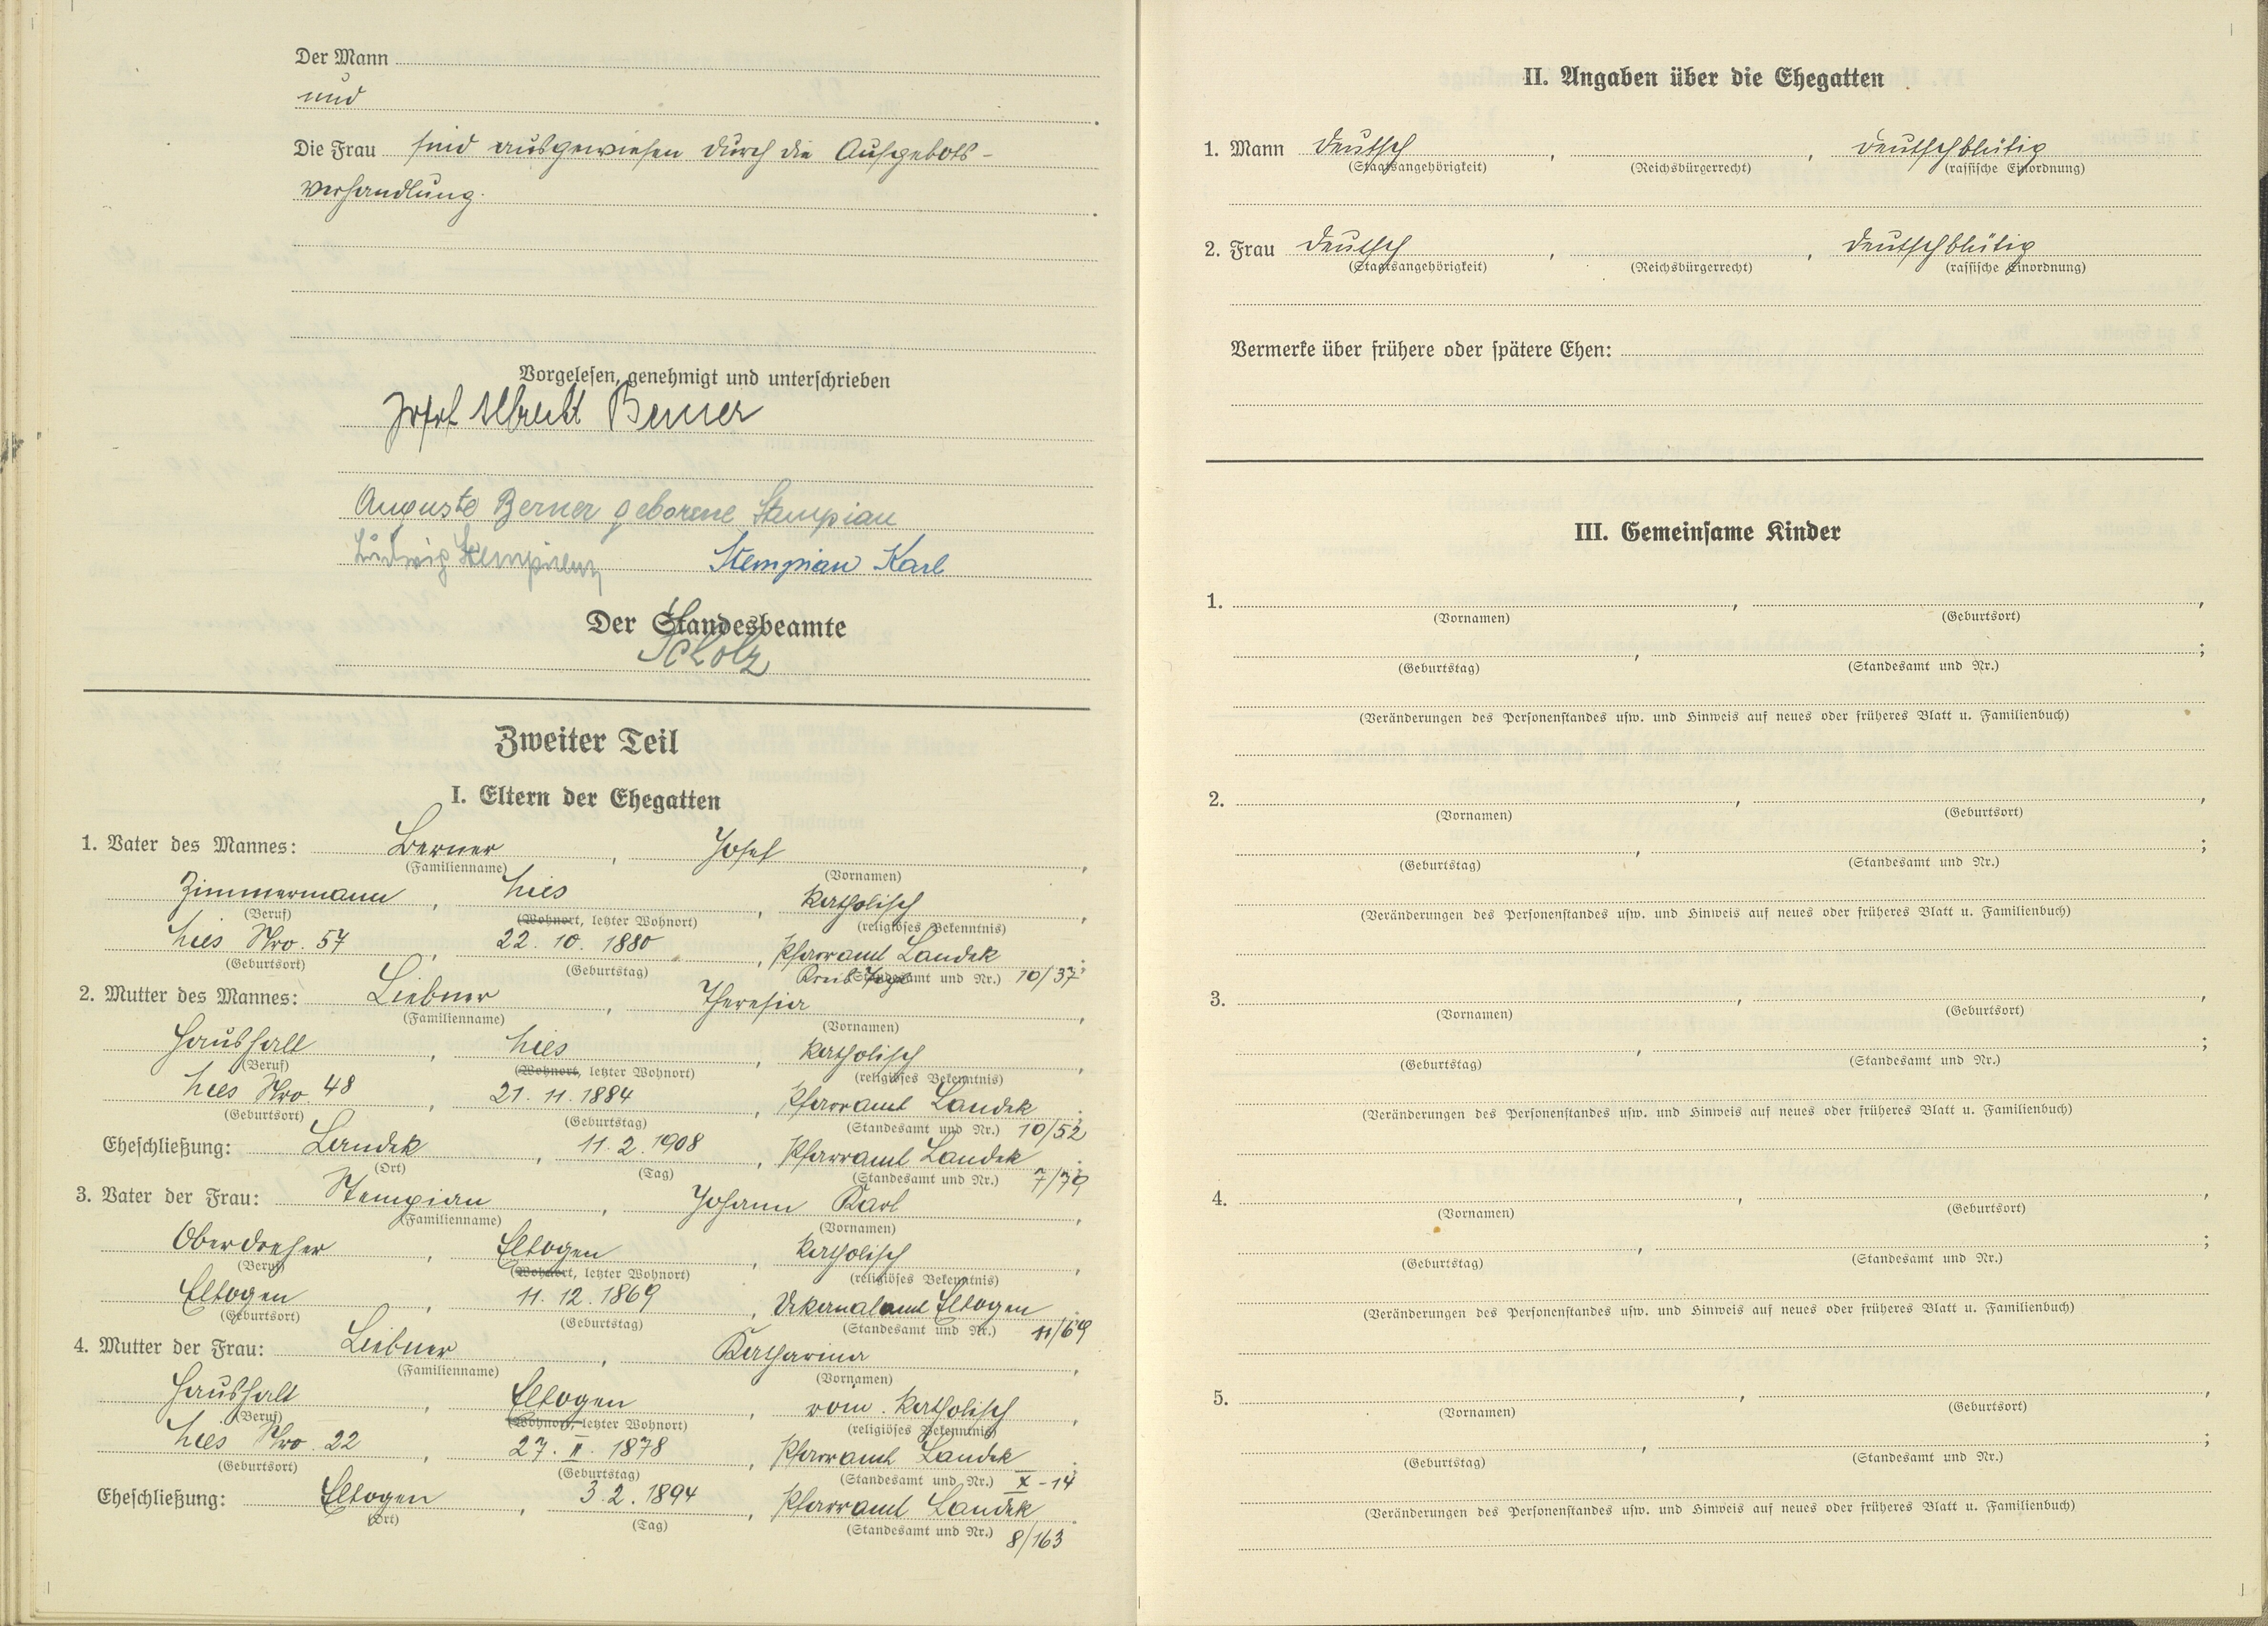 Der Mann
und
Die Frau sind ausgewiesen durch die Aufgebots-
verhandlung.
Vorgelesen, genehmigt und unterschrieben
Josef Albrecht Berner
Auguste Berner geborene Stempian
Ludwig Stempian Stempian Karl
Der Standesbeamte
Scholz
Zweiter Teil
I. Eltern der Ehegatten
1. Vater des Mannes: Berner, Josef,
(Familienname) (Vornamen)
Zimmermann, hies, katholisch,
(Beruf) (Wohnort, letzter Wohnort) (religiöses Bekenntnis)
hies Nro. 57, 22. 10. 1880, Pfarramt Landek
(Geburtsort) (Geburtstag) Kreis (Standesamt und Nr.) 10/37;
2. Mutter des Mannes: Liebner, Theresia,
(Familienname) (Vornamen)
Haushalt, hies, katholisch,
(Beruf) (Wohnort, letzter Wohnort) (religiöses Bekenntnis)
hies Nro. 48, 21. 11. 1884, Pfarramt Landek;
(Geburtsort) (Geburtstag) (Standesamt und Nr.) 10/52
Eheschließung: Landek, 11. 2. 1908, Pfarramt Landek.
(Ort) (Tag) (Standesamt und Nr.) 7/79
3. Vater der Frau: Stempian, Johann Karl,
(Familienname) (Vornamen)
Oberdreher, Elbogen, katholisch,
(Beruf) (Wohnort, letzter Wohnort) (religiöses Bekenntnis)
Elbogen, 11. 12. 1869, Dekanalamt Elbogen;
(Geburtsort) (Geburtstag) (Standesamt und Nr.) 11/69
4. Mutter der Frau: Liebner, Katharina,
(Familienname) (Vornamen)
Haushalt, Elbogen, röm. katholisch,
(Beruf) (Wohnort, letzter Wohnort) (religiöses Bekenntnis)
hies Nro. 22, 27. II. 1878, Pfarramt Landek;
(Geburtsort) (Geburtstag) (Standesamt und Nr.) X-14
Eheschließung: Elbogen, 3. 2. 1894, Pfarramt Landek.
(Ort) (Tag) (Standesamt und Nr.) 8/163
II. Angaben über die Ehegatten
1. Mann deutsch, , deutschblütig
(Staatsangehörigkeit) (Reichsbürgerrecht) (rassische Einordnung)
2. Frau deutsch, , deutschblütig
(Staatsangehörigkeit) (Reichsbürgerrecht) (rassische Einordnung)
Vermerke über frühere oder spätere Ehen:
III. Gemeinsame Kinder
1. , ,
(Vornamen) (Geburtsort)
, ;
(Geburtstag) (Standesamt und Nr.)
(Veränderungen des Personenstandes usw. und Hinweis auf neues oder früheres Blatt u. Familienbuch)
2. , ,
(Vornamen) (Geburtsort)
, ;
(Geburtstag) (Standesamt und Nr.)
(Veränderungen des Personenstandes usw. und Hinweis auf neues oder früheres Blatt u. Familienbuch)
3. , ,
(Vornamen) (Geburtsort)
, ;
(Geburtstag) (Standesamt und Nr.)
(Veränderungen des Personenstandes usw. und Hinweis auf neues oder früheres Blatt u. Familienbuch)
4. , ,
(Vornamen) (Geburtsort)
, ;
(Geburtstag) (Standesamt und Nr.)
(Veränderungen des Personenstandes usw. und Hinweis auf neues oder früheres Blatt u. Familienbuch)
5. , ,
(Vornamen) (Geburtsort)
, ;
(Geburtstag) (Standesamt und Nr.)
(Veränderungen des Personenstandes usw. und Hinweis auf neues oder früheres Blatt u. Familienbuch)